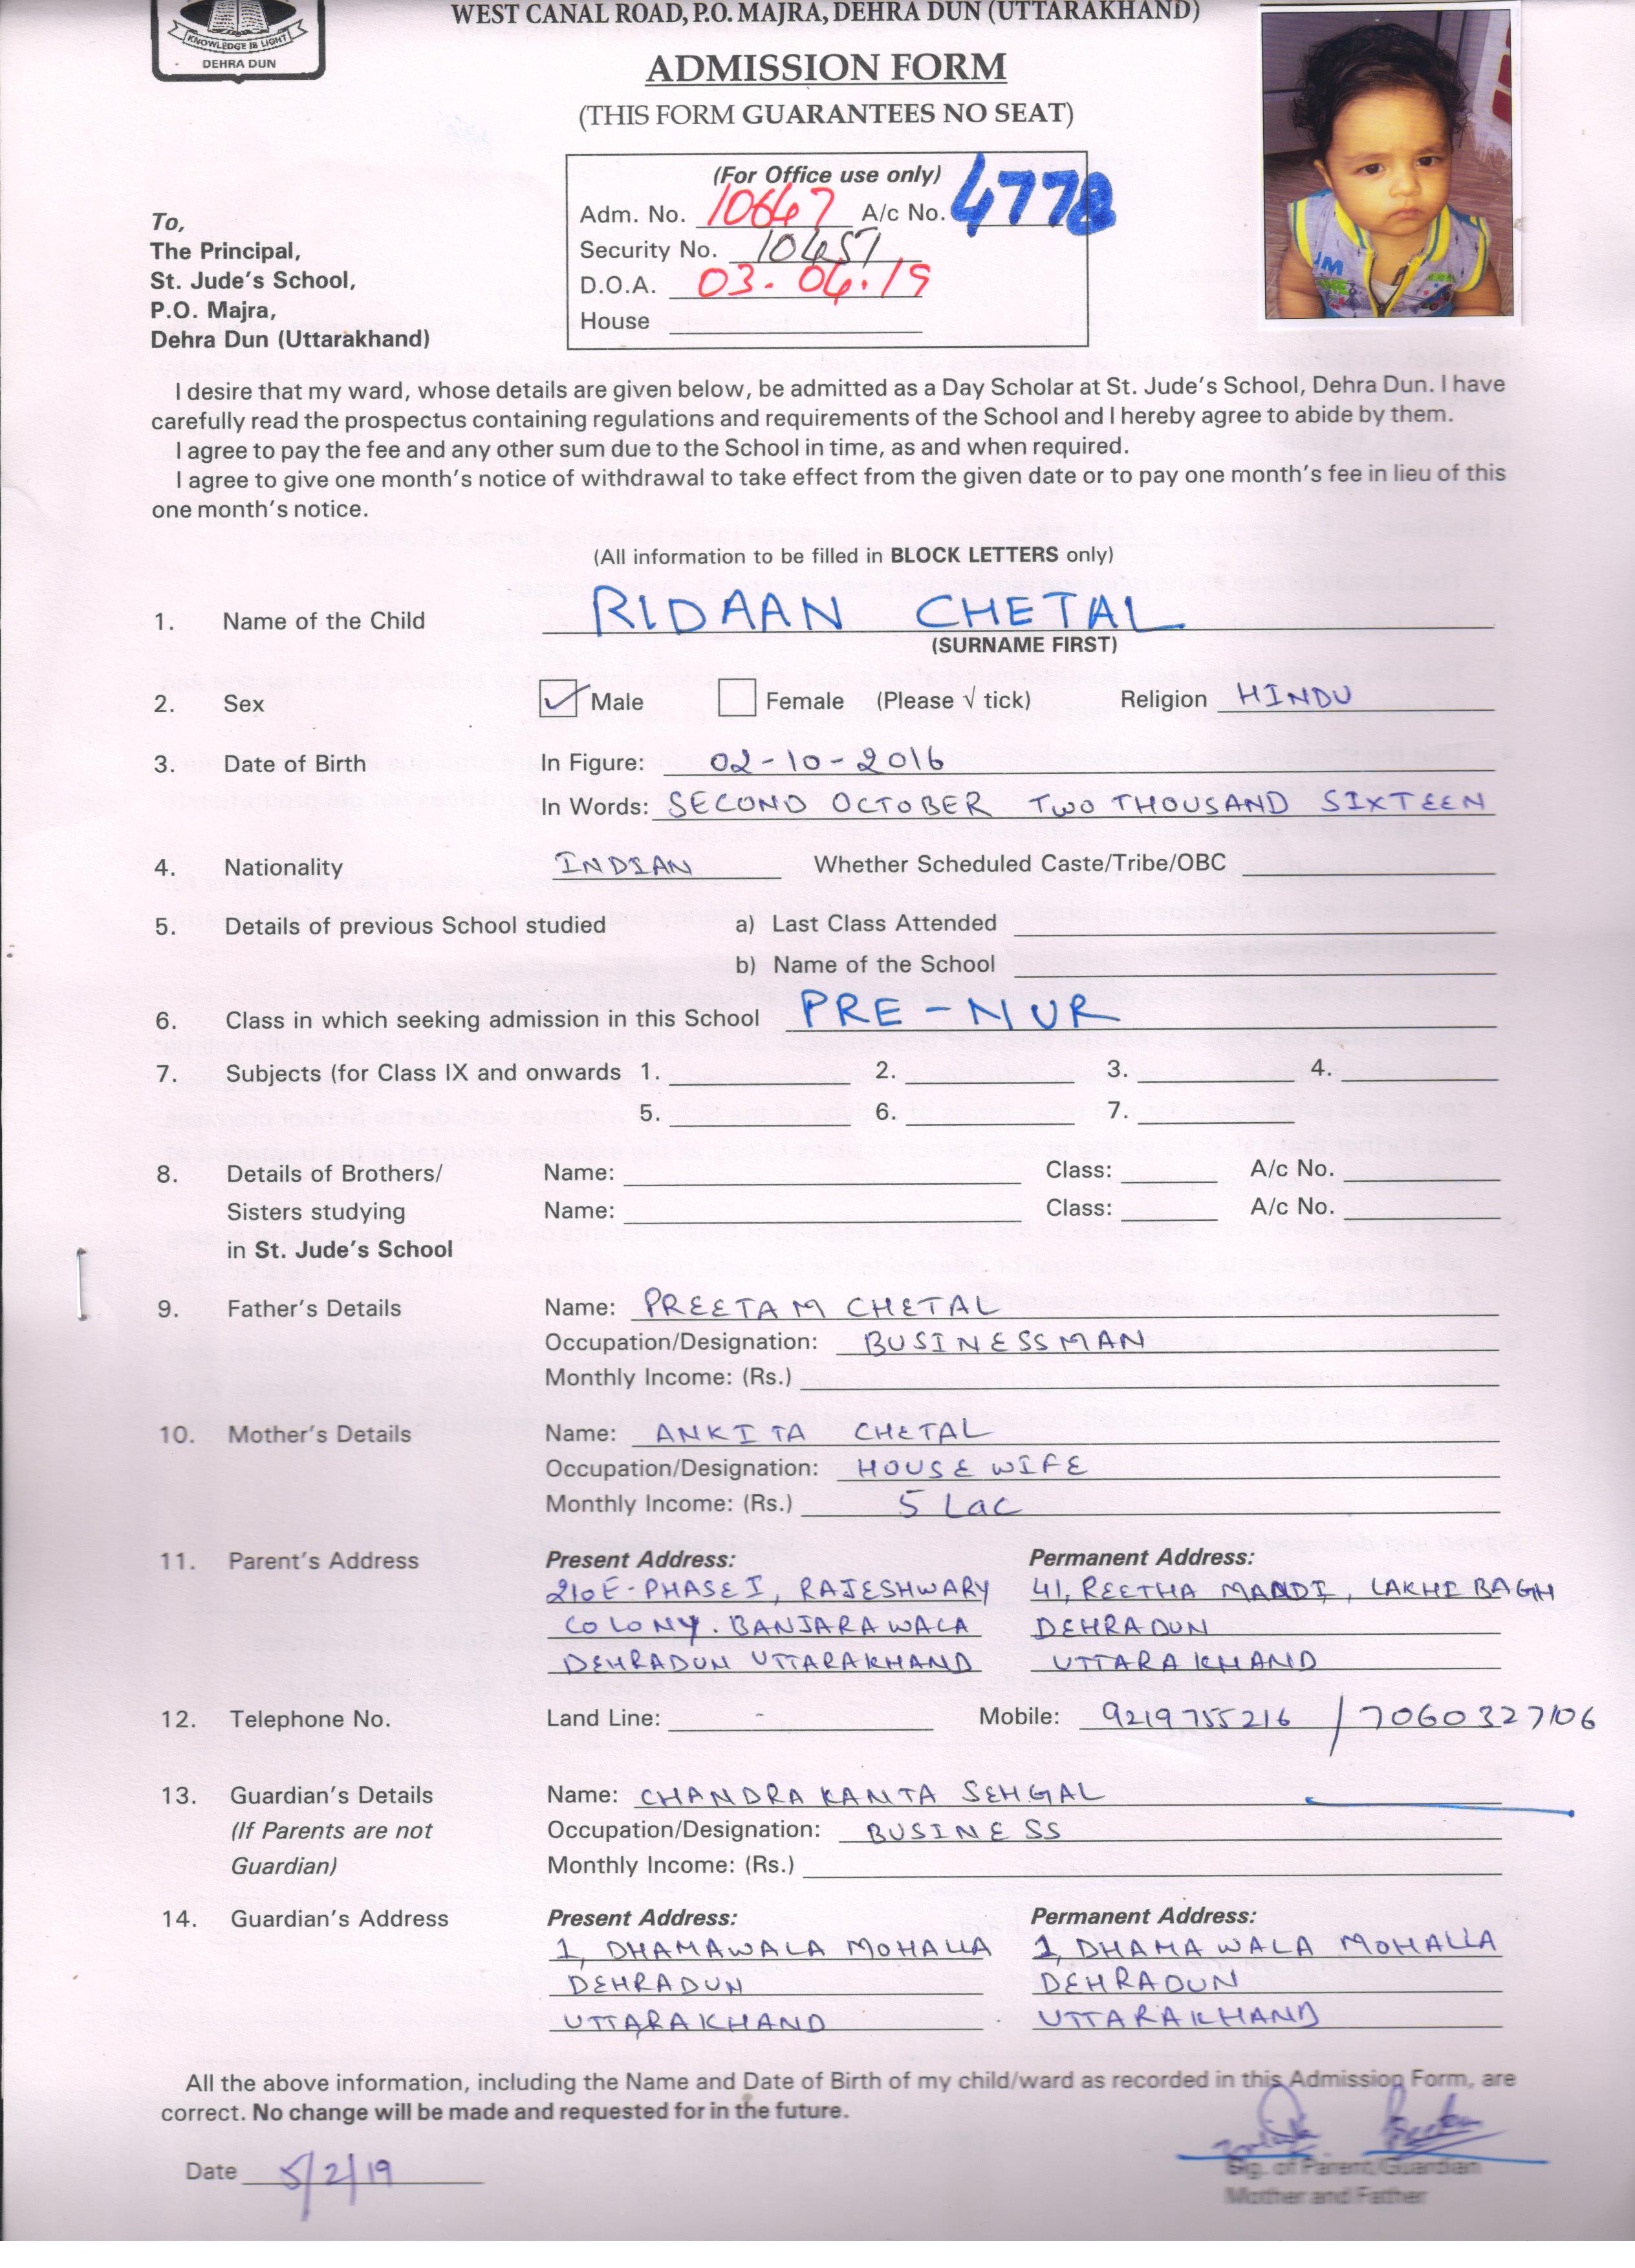 WEST CANAL ROAD, P.O. MAJRA, DEHRA DUN (UTTARAKHAND)
KNOWLEDGE IS LIGHT
DEHRA DUN
ADMISSION FORM
(THIS FORM GUARANTEES NO SEAT)
(For Office use only)
Adm. No. 10647 A/c No. 4772
Security No. 10457
D.O.A. 03.04.19
House
To,
The Principal,
St. Jude's School,
P.O. Majra,
Dehra Dun (Uttarakhand)
I desire that my ward, whose details are given below, be admitted as a Day Scholar at St. Jude's School, Dehra Dun. I have
carefully read the prospectus containing regulations and requirements of the School and I hereby agree to abide by them.
I agree to pay the fee and any other sum due to the School in time, as and when required.
I agree to give one month's notice of withdrawal to take effect from the given date or to pay one month's fee in lieu of this
one month's notice.
(All information to be filled in BLOCK LETTERS only)
1. Name of the Child RIDAAN CHETAL
(SURNAME FIRST)
2. Sex Male Female (Please √ tick) Religion HINDU
3. Date of Birth In Figure: 02-10-2016
In Words: SECOND OCTOBER TWO THOUSAND SIXTEEN
4. Nationality INDIAN Whether Scheduled Caste/Tribe/OBC
5. Details of previous School studied a) Last Class Attended
b) Name of the School
6. Class in which seeking admission in this School PRE-NUR
7. Subjects (for Class IX and onwards 1. 2. 3. 4.
5. 6. 7.
8. Details of Brothers/ Name: Class: A/c No.
Sisters studying Name: Class: A/c No.
in St. Jude's School
9. Father's Details Name: PREETAM CHETAL
Occupation/Designation: BUSINESSMAN
Monthly Income: (Rs.)
10. Mother's Details Name: ANKITA CHETAL
Occupation/Designation: HOUSE WIFE
Monthly Income: (Rs.) 5 Lac
11. Parent's Address Present Address: Permanent Address:
210E-PHASE I, RAJESHWARY 41, REETHA MANDI, LAKHI BAGH
COLONY. BANJARAWALA DEHRADUN
DEHRADUN UTTARAKHAND UTTARAKHAND
12. Telephone No. Land Line: - Mobile: 9219755216 / 7060327106
13. Guardian's Details Name: CHANDRA KANTA SEHGAL
(If Parents are not Occupation/Designation: BUSINESS
Guardian) Monthly Income: (Rs.)
14. Guardian's Address Present Address: Permanent Address:
1, DHAMAWALA MOHALLA 1, DHAMAWALA MOHALLA
DEHRADUN DEHRADUN
UTTARAKHAND UTTARAKHAND
All the above information, including the Name and Date of Birth of my child/ward as recorded in this Admission Form, are
correct. No change will be made and requested for in the future.
Date 5/2/19
Sig. of Parent/Guardian
Mother and Father